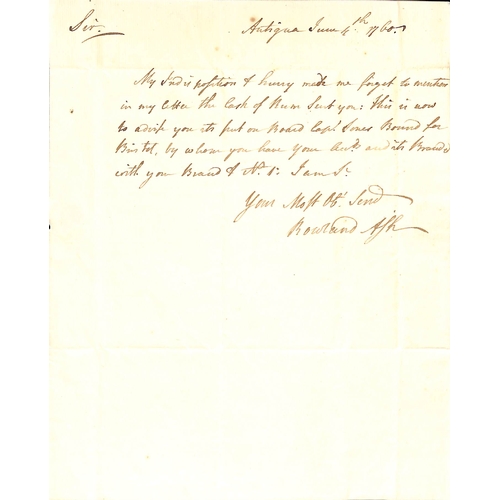 Sir. Antigua June 4th. 1760.
My Indisposition & hurry made me forget to mention
in my letter the Cask of Rum Sent you: this is now
to advise you its put on Board Capt. Jones Bound for
Bristol, by whom you have your and its Brand'd
with you Brand & No. 1: I am Sr.
Your Most Obt. Servt
Rowland Ash